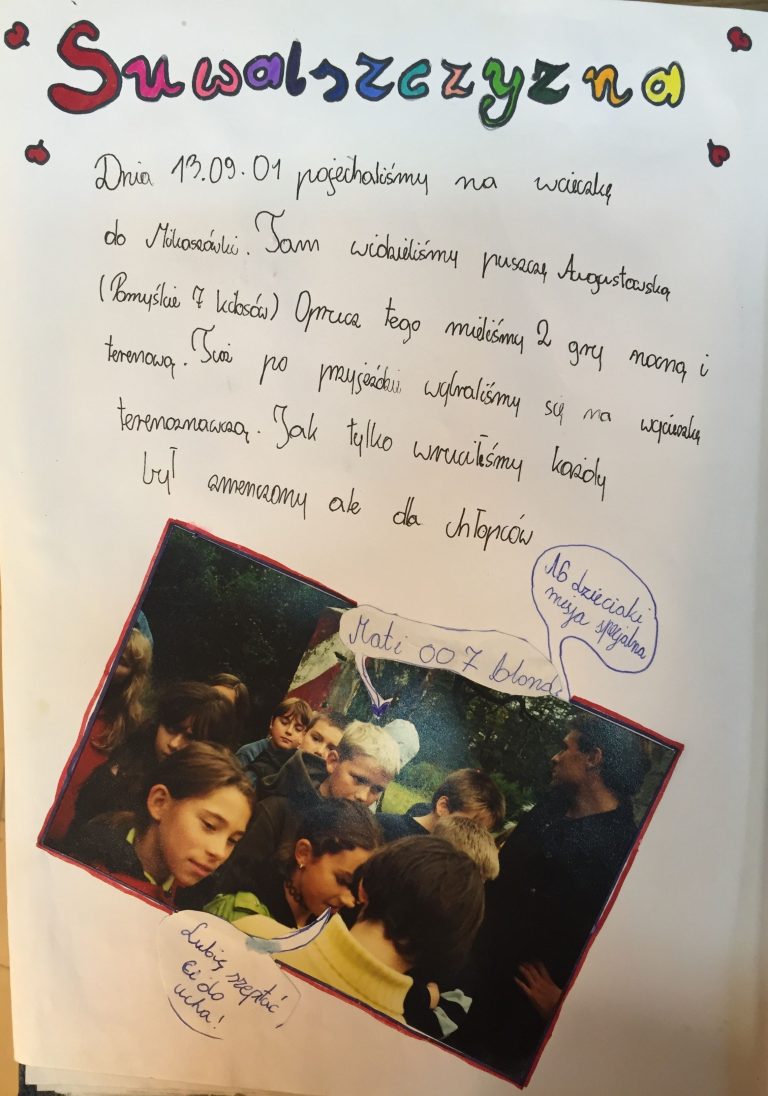 Suwalszczyzna
Dnia 13.09.01 pojechaliśmy na wcieczkę
do Mikaszówki. Tam widzieliśmy puszczę Augustowską
(Pomyślcie 7 kilosów) Oprucz tego mieliśmy 2 gry nocną i
terenową. Tuż po przyjeździe wybraliśmy się na wycieczkę
terenoznawczą. Jak tylko wruciliśmy każdy
był zmenczony ale dla chłopców
16 dzieciaki
misja spejalna
Mati 007 blond
Lubię szeptać
Ci do
ucha!